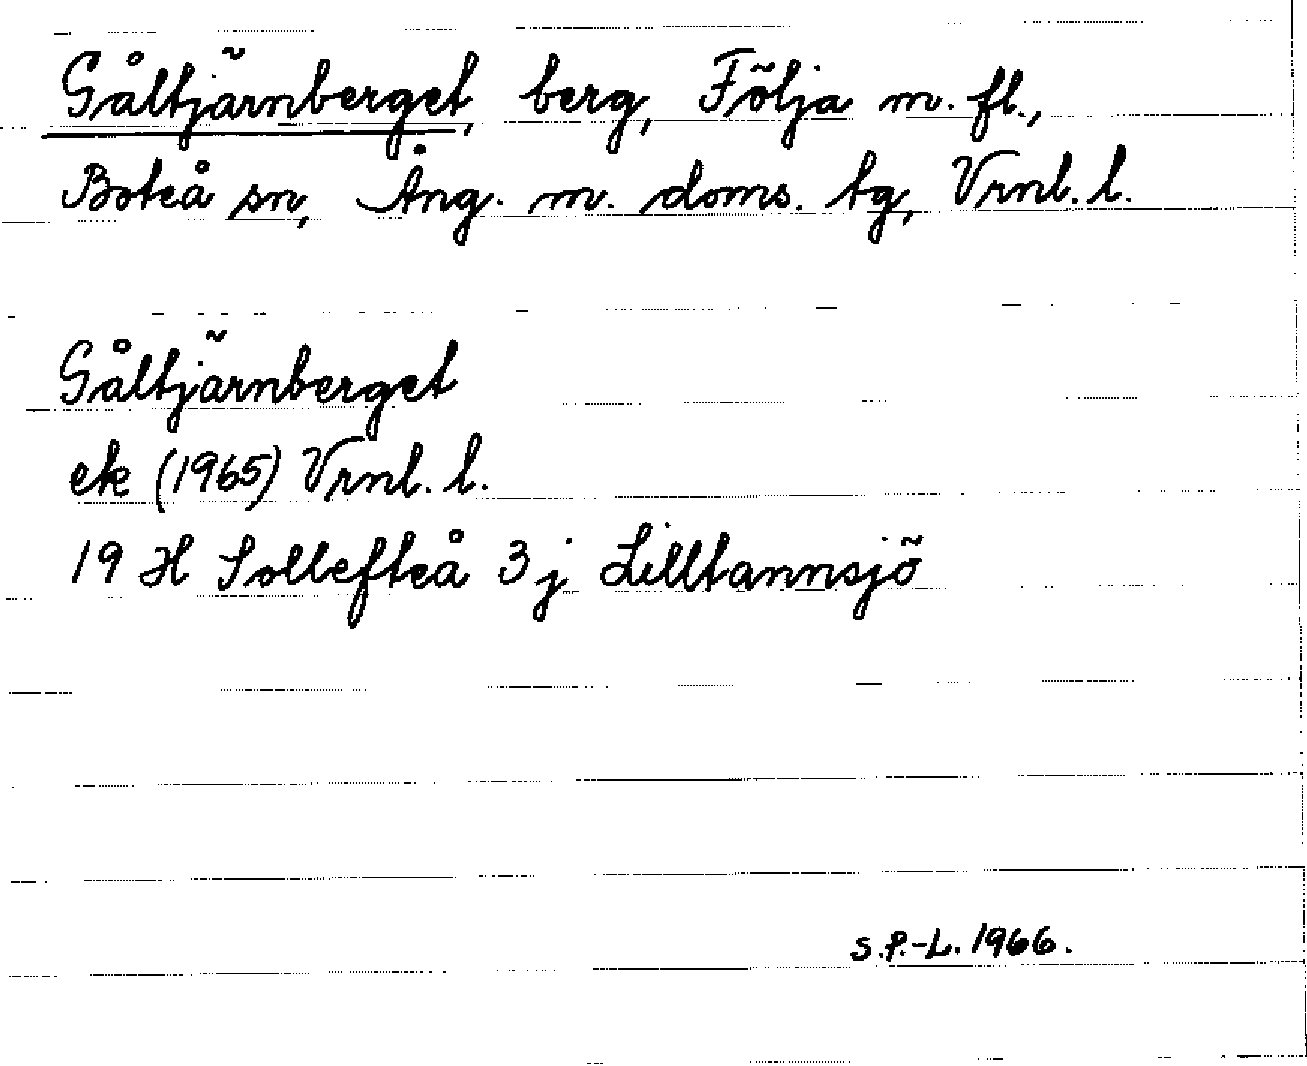 Gåltjärnberget, berg, Följa m. fl.,
Boteå sn, Ång. m. doms. tg, Vrnl. l.
Gåltjärnberget
ek (1965) Vrnl. l.
19 H Sollefteå 3 j Lilltannsjö
S.P.-L. 1966.